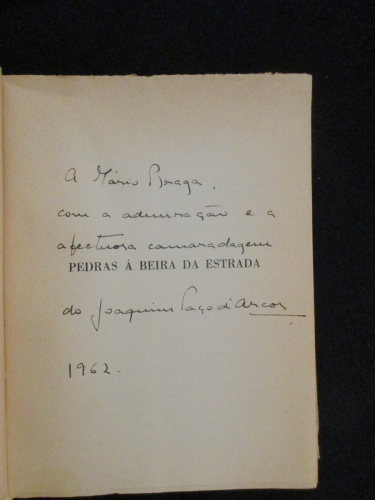 A Mário Braga,
com a admiração e a
afectuosa camaradagem
PEDRAS À BEIRA DA ESTRADA
do Joaquim Paço d'Arcos
1962.